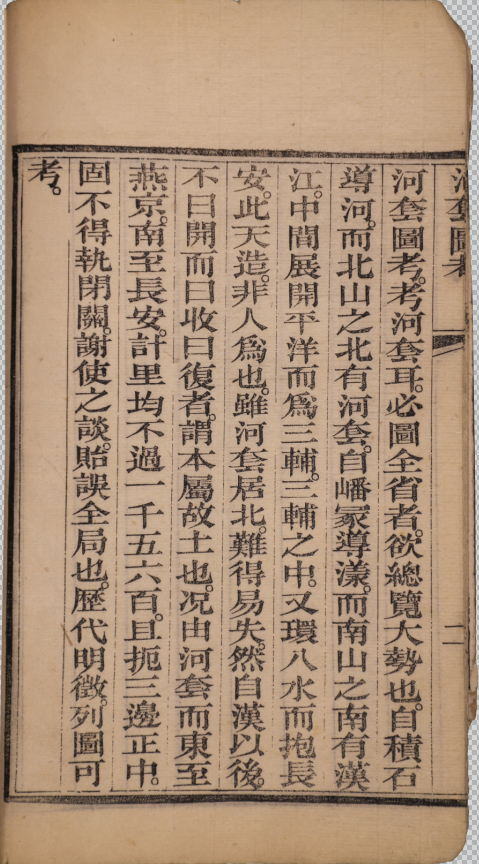 河套圖考
二
河套圖考。考河套耳。必圖全省者。欲總覽大勢也。自積石
導河。而北山之北有河套。自嶓冢導漾。而南山之南有漢
江。中間展開平洋而爲三輔。三輔之中。又環八水而抱長
安。此天造。非人爲也。雖河套居北。難得易失。然自漢以後。
不曰開而曰收曰復者。謂本屬故土也。况由河套而東至
燕京。南至長安。計里均不過一千五六百。且扼三邊正中。
固不得執閉關。謝使之談。貽誤全局也。歷代明徵。列圖可
考。